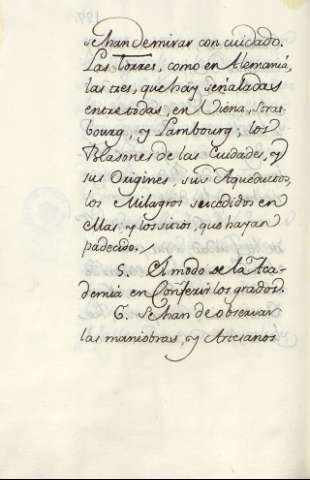 se han de mirar con cuidado.
Las Torres, como en Alemania,
las tres, que hay señaladas
entre todas, en Viena, Stras
bourg, y Lambourg; los
Blasones de las Ciudades, y
sus Origines, sus Aqueductos,
los Milagros sucedidos en
ellas, y los sitios, que hayan
padecido.
5. El modo de la Aca-
demia en Conferir los grados.
6. Se han de observar
las maniobras, y Artesanos